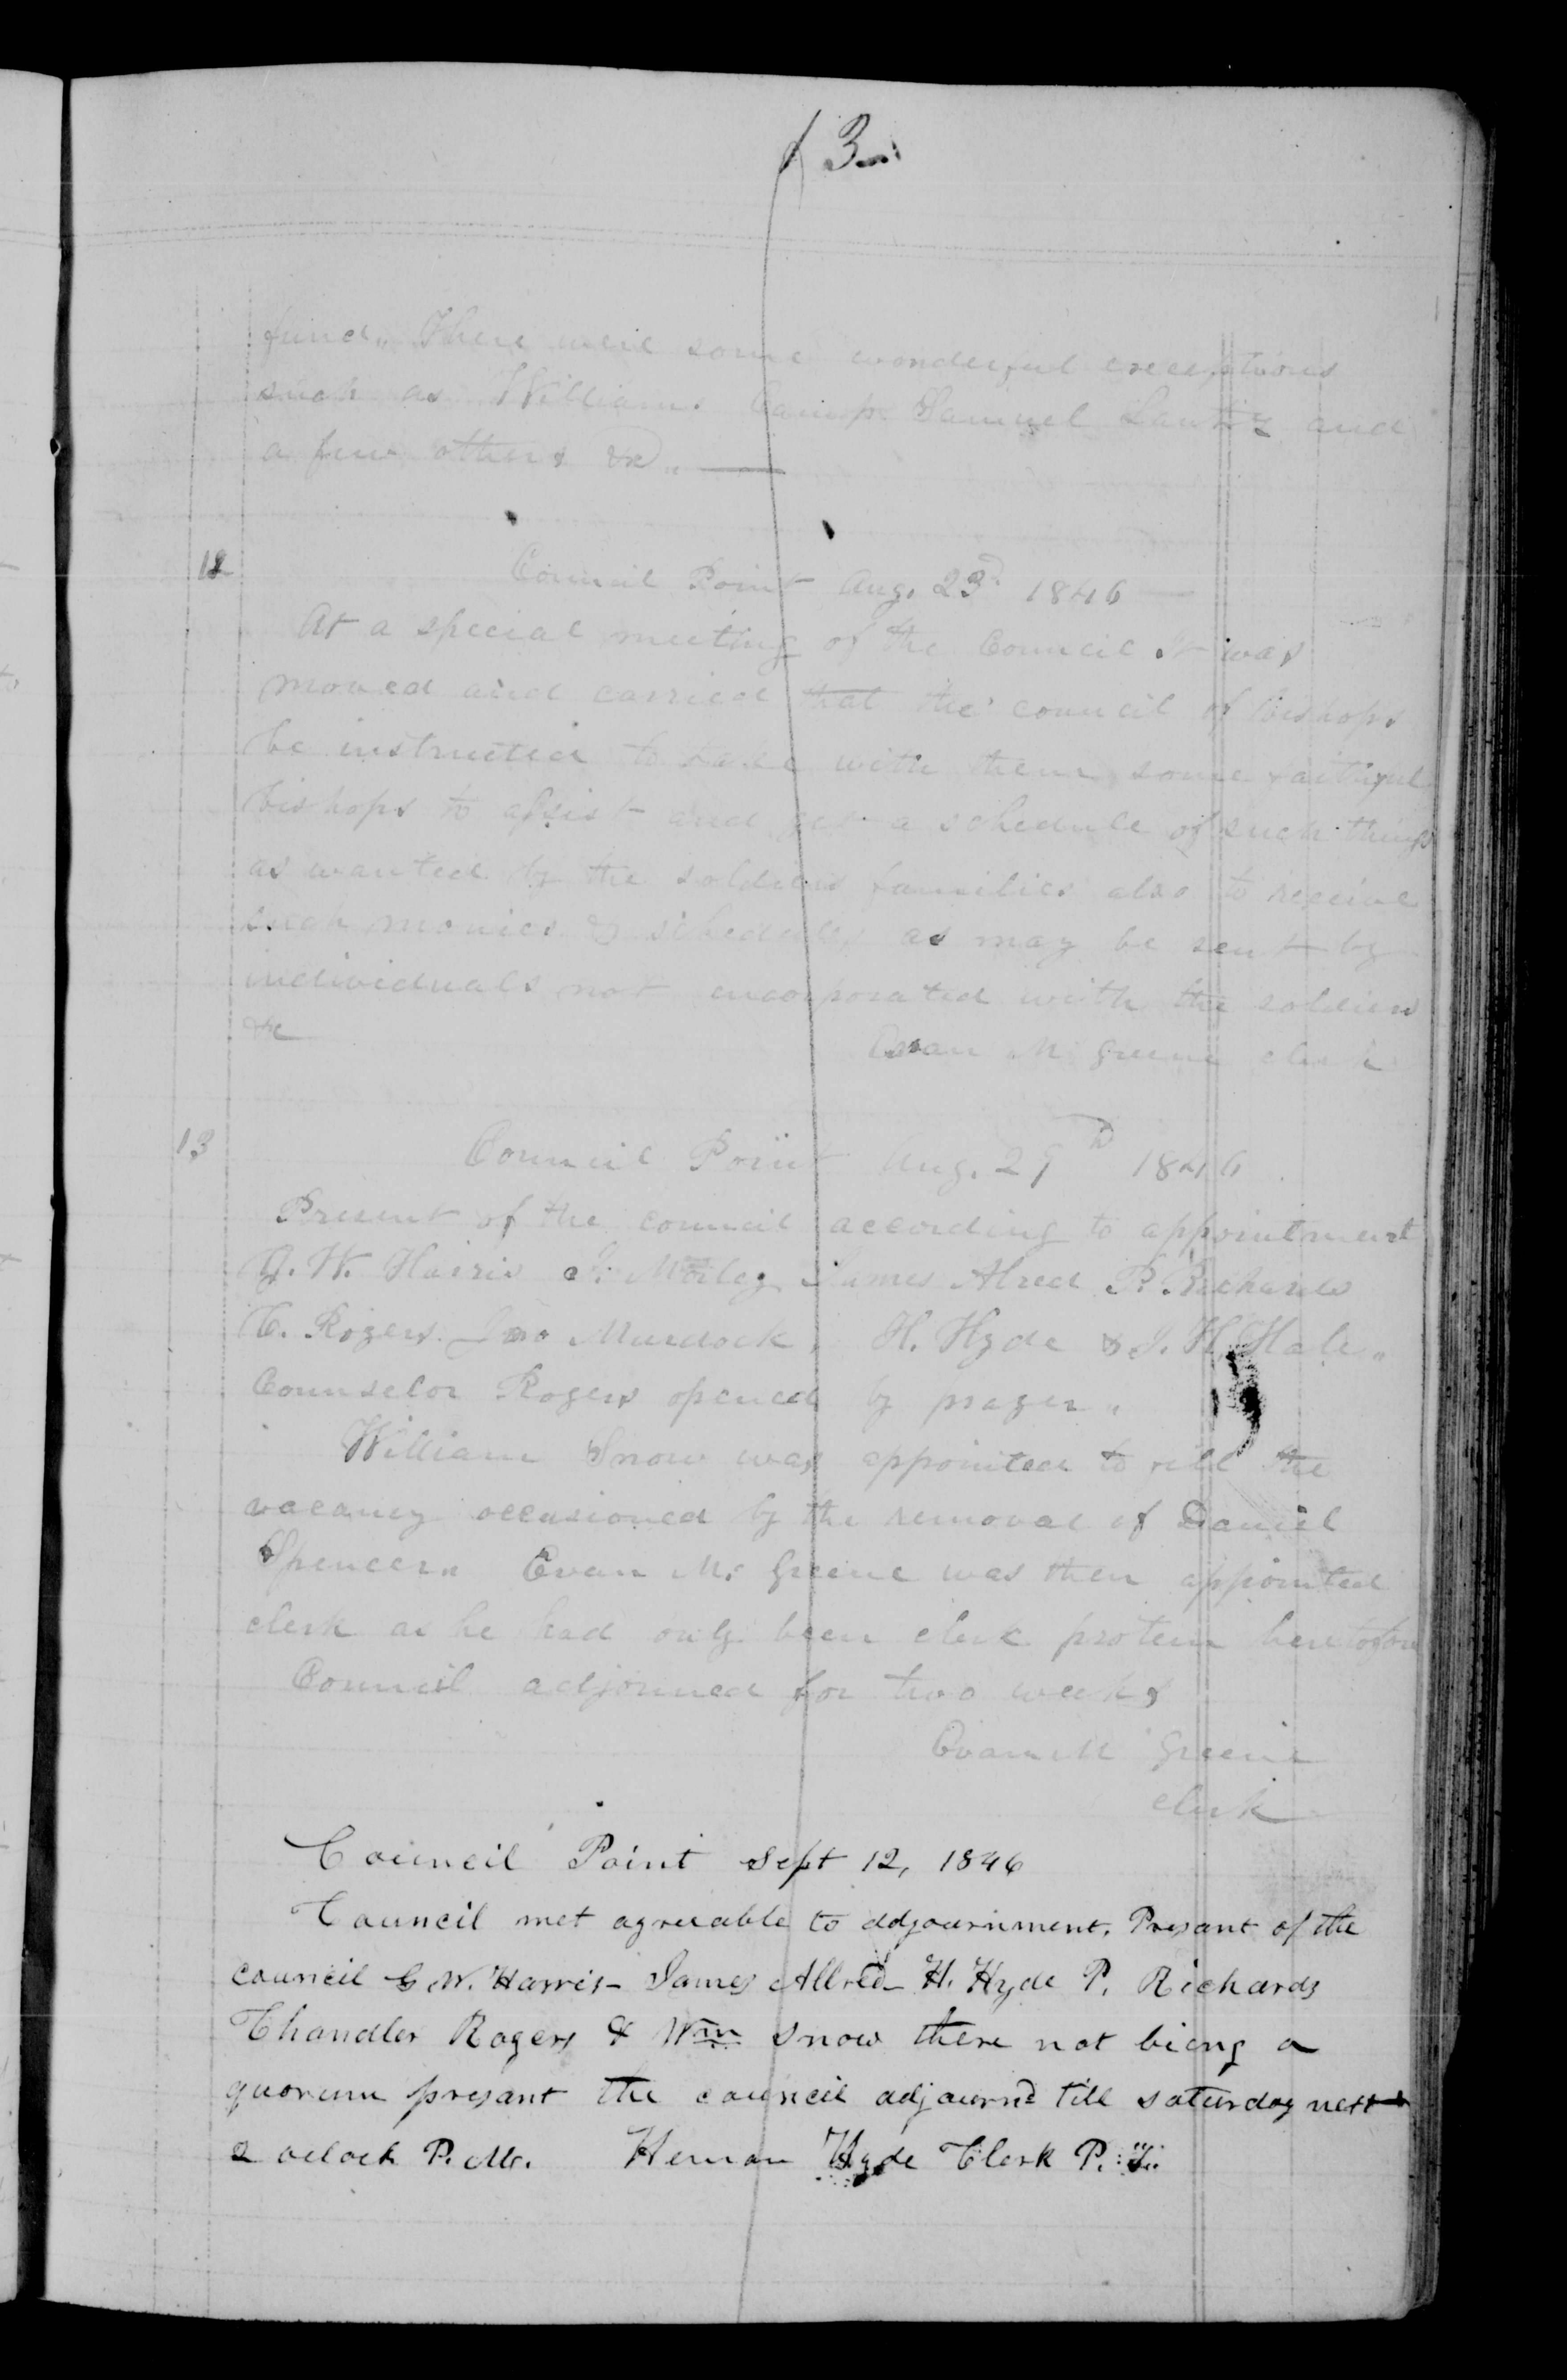 13
fund,, There were some wonderful exceptions
such as Williams Camp. Samuel and
a few others &c ,,
12
Council Point Aug. 23d 1846
At a special meeting of the Council it was
moved and carried that the council of bishops
be instructed to take with them some faithful
bishops to assist and get a schedule of such things
as wanted by the soldiers families also to receive
such monies & schedules as may be sent by
individuals not incorporated with the soldiers
&c
Evan M. Greene clerk
13
Council Point Aug. 29 1846
Present of the council according to appointment
G. W. Harris I. Morley James Alred P. Richards
C. Rogers Jno Murdock, H. Hyde & J. H. Hale,,
Counselor Rogers opened by prayer.
William Snow was appointed to fill the
vacancy occasioned by the removal of Daniel
Spencer,, Evan M. Greene was then appointed
clerk as he had only been clerk protem heretofore
Council adjorned for two weeks
Evan M Greene
clerk
Council Point Sept 12, 1846
Council met agreeable to adjournment. Presant of the
council G W. Harris - James Allred - H. Hyde P. Richards
Chandler Rogers & Wm Snow there not bieng a
quorum presant the council adjournd till saturday next
2 oclock P. M. Heman Hyde Clerk P. T.